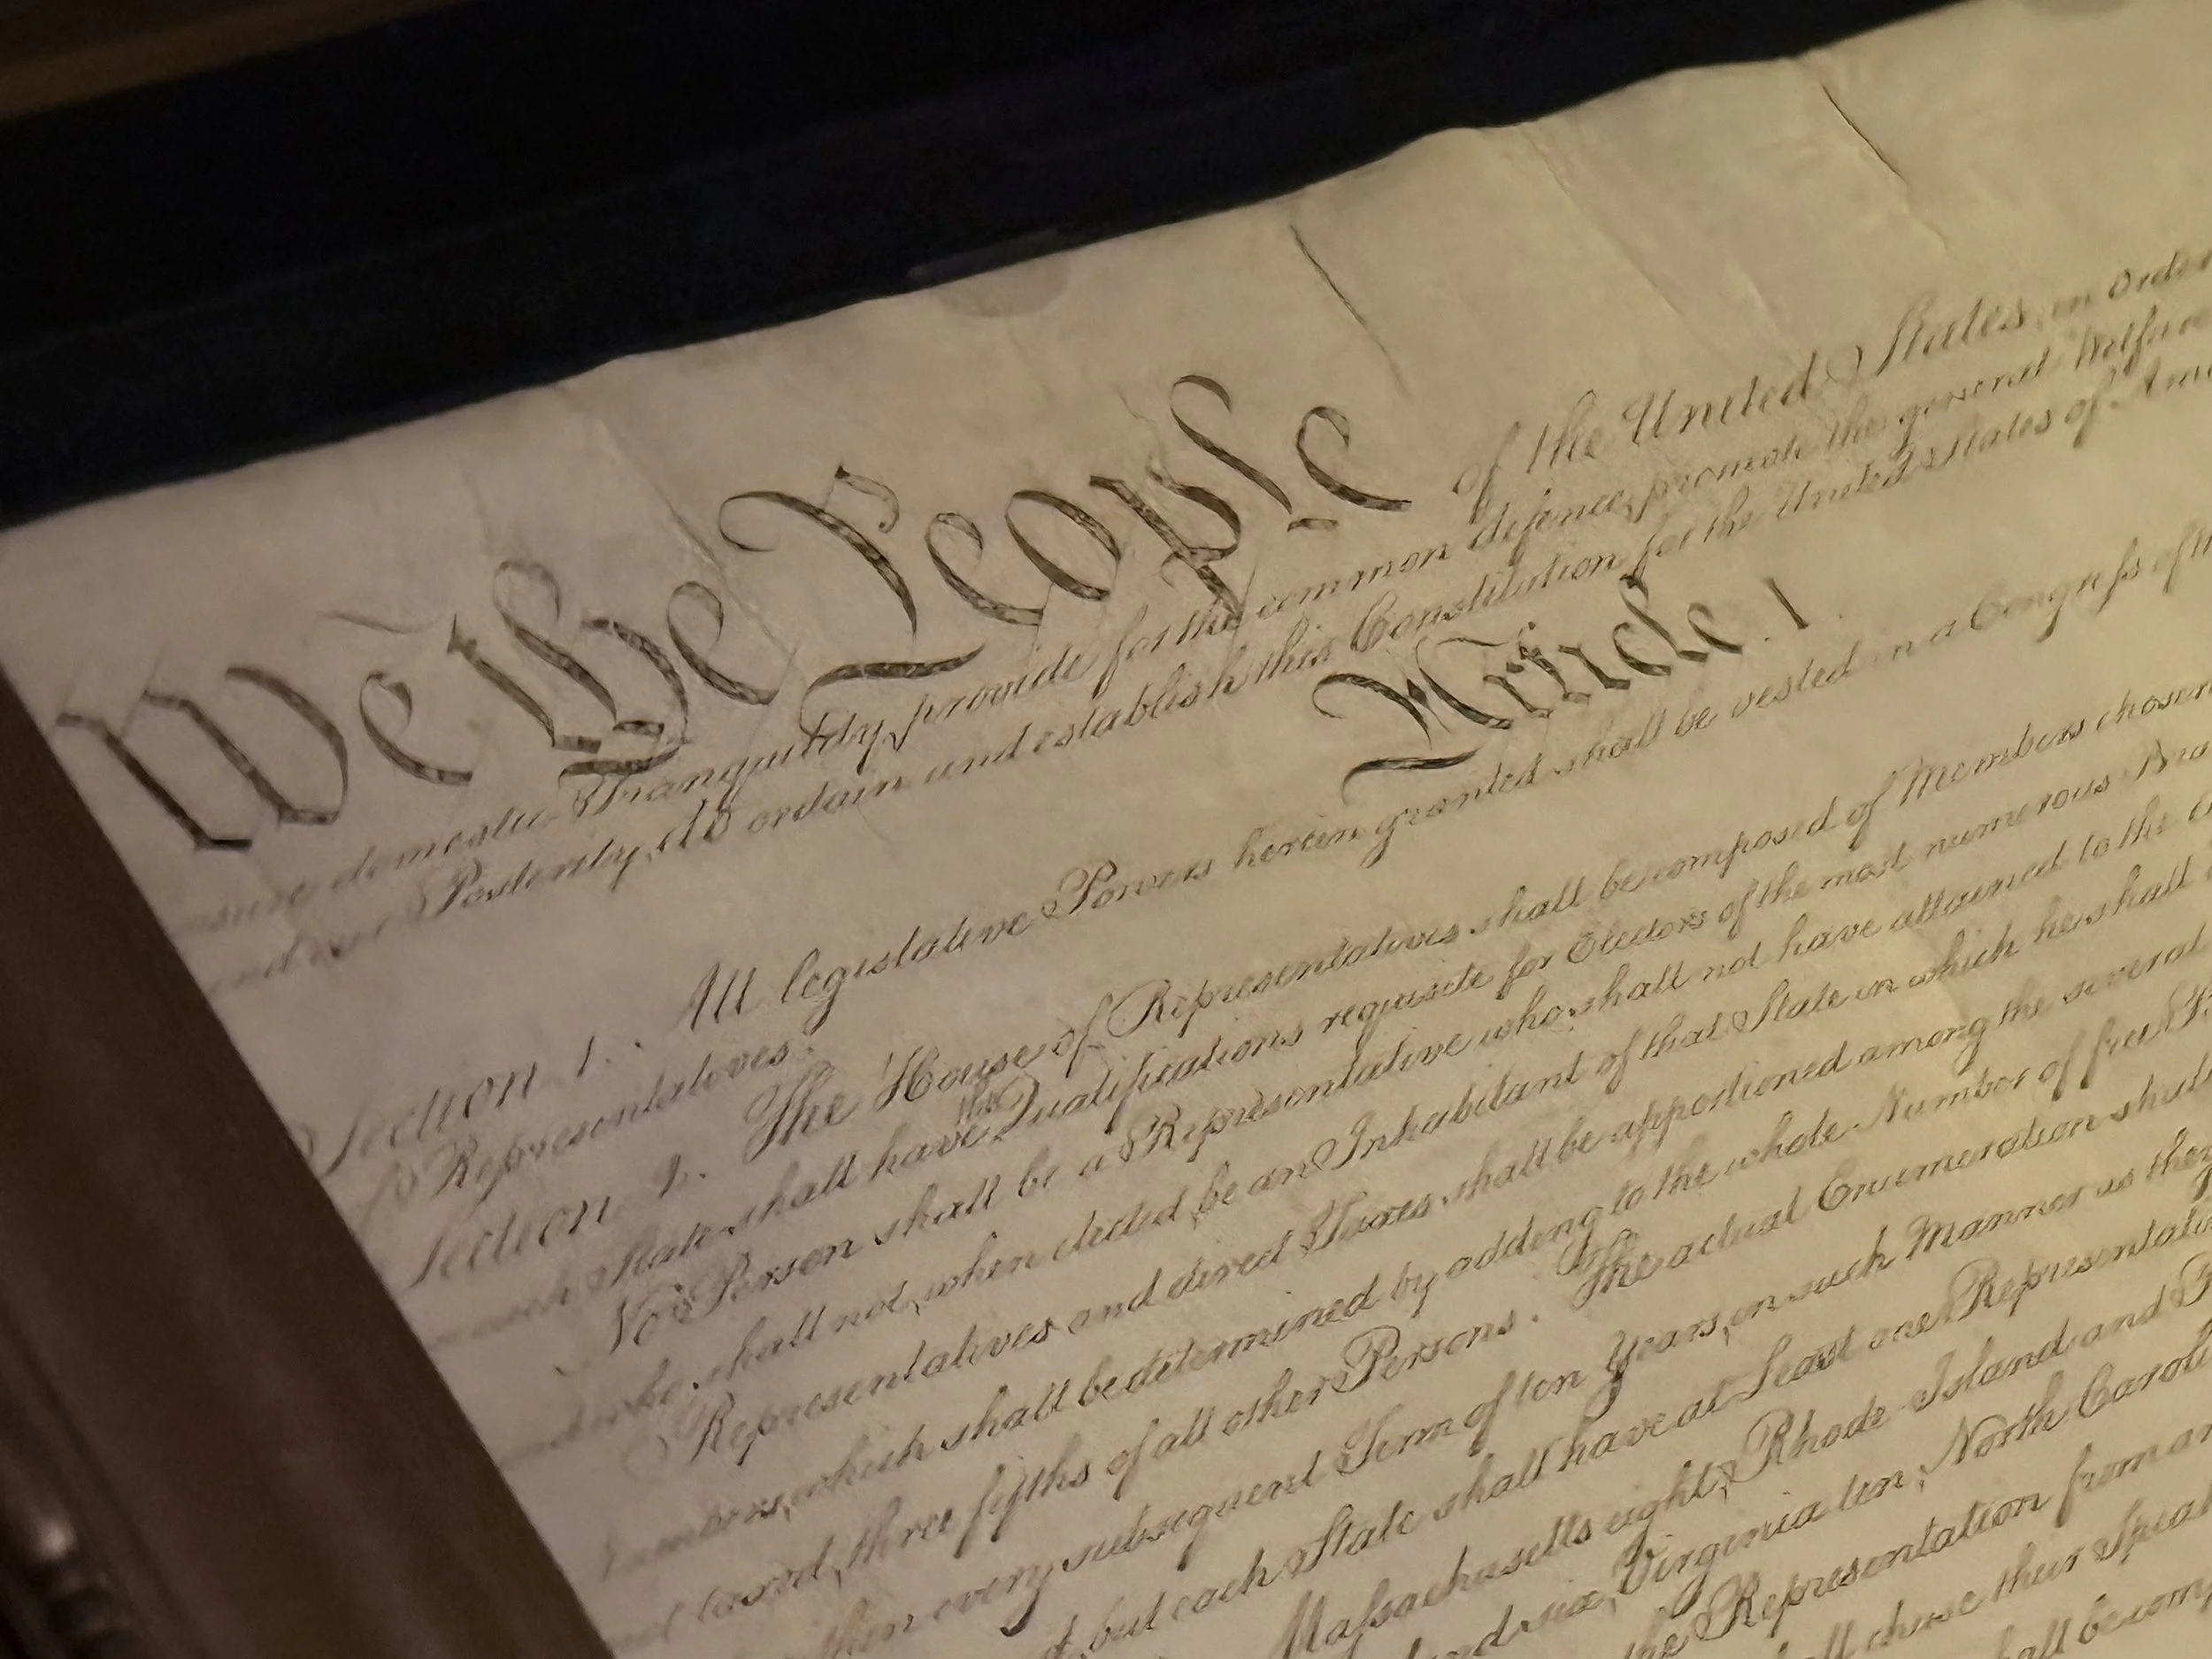 We the People of the United States, in Order
insure domestic Tranquility, provide for the common defence, promote the general Welfare
and our Posterity, do ordain and establish this Constitution for the United States of Ame
Article. I.
Section. 1. All legislative Powers herein granted shall be vested in a Congress of the
of Representatives.
Section. 2. The House of Representatives shall be composed of Members chosen
in each State shall have the Qualifications requisite for Electors of the most numerous Bra
No Person shall be a Representative who shall not have attained to the
and who shall not, when elected, be an Inhabitant of that State in which he shall
Representatives and direct Taxes shall be apportioned among the several
Numbers, which shall be determined by adding to the whole Number of free
not taxed, three fifths of all other Persons. The actual Enumeration shall
within every subsequent Term of ten Years, in such Manner as they
but each State shall have at Least one Representati
Massachusetts eight, Rhode Island and
six, Virginia ten, North Caroli
the Representation from an
shall chuse their Speak
shall be comp